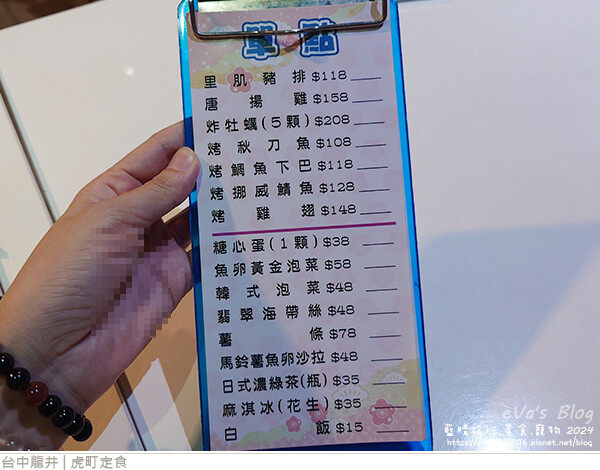 單點
里肌豬排$118
唐揚雞$158
炸牡蠣(5顆)$208
烤秋刀魚$108
烤鯛魚下巴$118
烤挪威鯖魚$128
烤雞翅$148
糖心蛋(1顆)$38
魚卵黃金泡菜$58
韓式泡菜$48
翡翠海帶絲$48
薯條$78
馬鈴薯魚卵沙拉$48
日式濃綠茶(瓶)$35
麻淇冰(花生)$35
白飯$15
eVa's Blog
美食寵物 2024
台中龍井 | 虎町定食